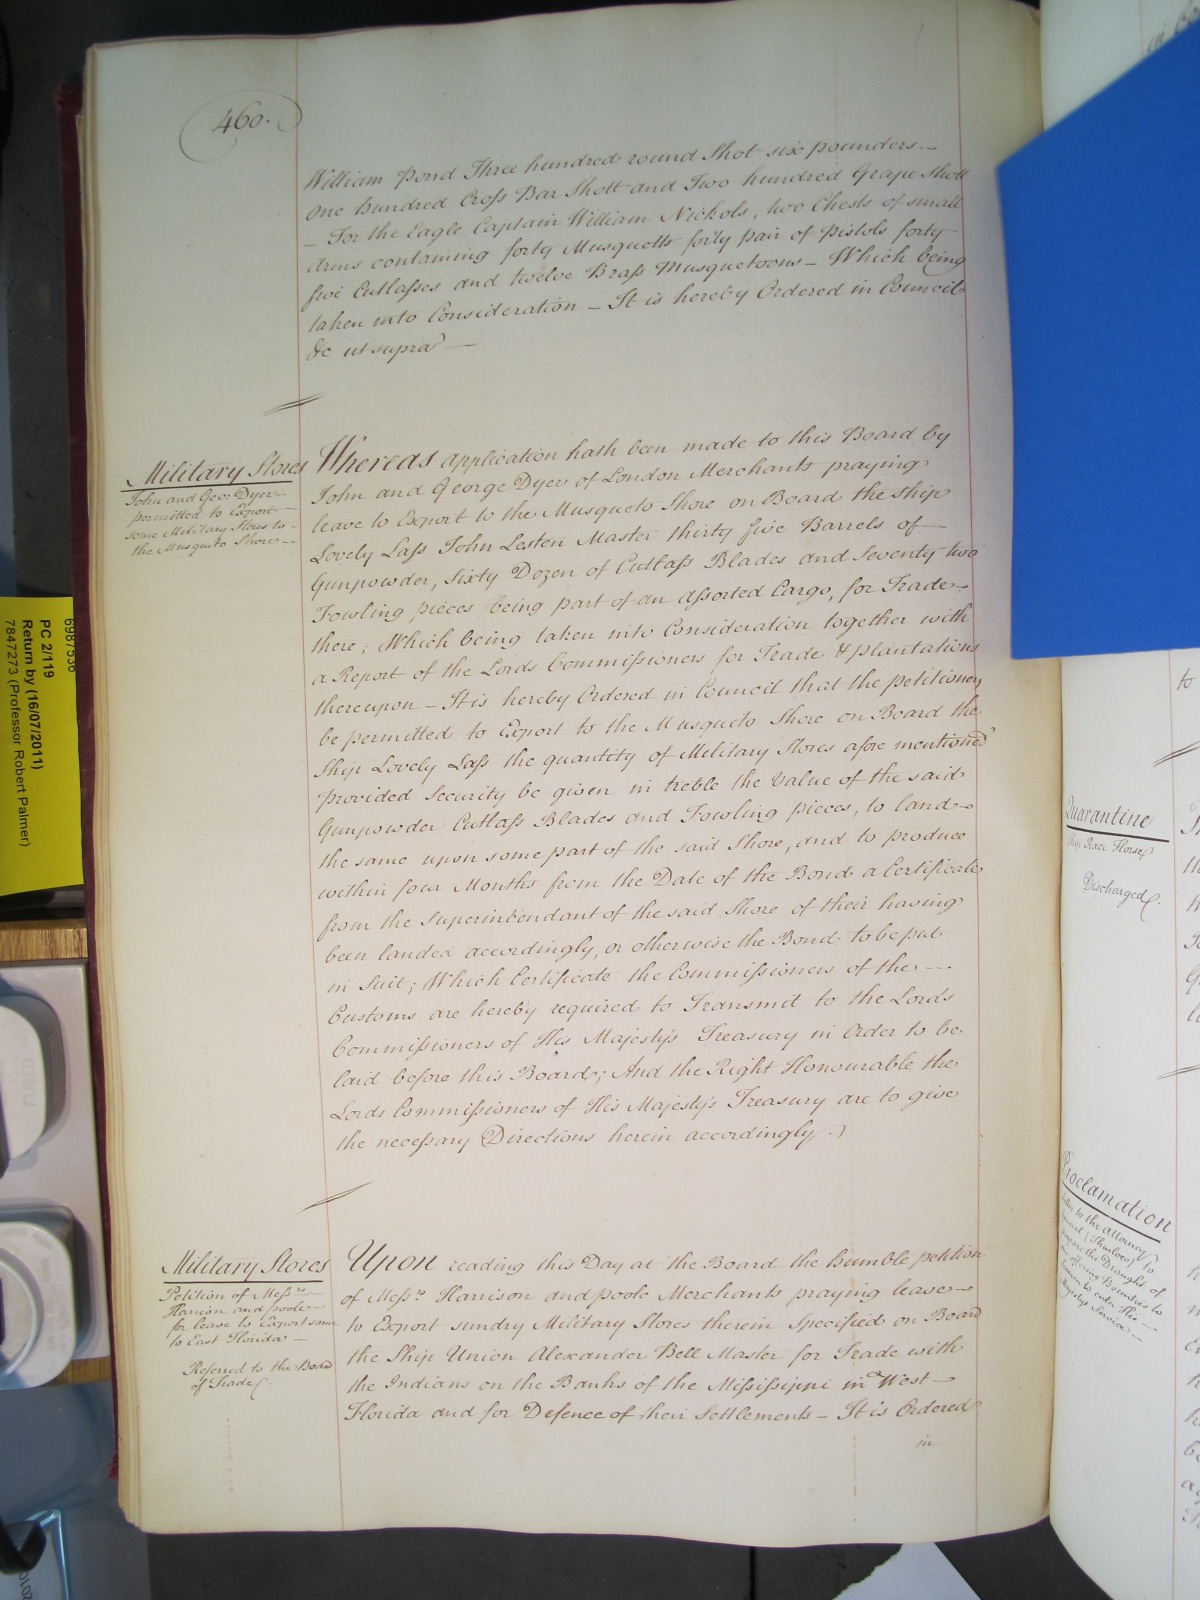 460.
William Pond Three hundred round Shot six pounders—
One hundred Cross Bar Shott and Two hundred Grape Shott
— For the Eagle Captain William Nickols, two Chests of small
Arms containing forty Musquetts forty pair of Pistols forty
five Cutlasses and twelve Brass Musquetoons — Which being
taken into Consideration — It is hereby Ordered in Council
&c ut supra —
Military Stores
John and Geo: Dyer—
permitted to Export—
some Military Stores to—
the Musquito Shore—
Whereas application hath been made to this Board by
John and George Dyer of London Merchants praying
leave to Export to the Musqueto Shore on Board the Ship
Lovely Lass John Lesten Master thirty five Barrels of—
Gunpowder, Sixty Dozen of Cutlass Blades and Seventy two
Fowling pieces being part of an Assorted Cargo, for Trade—
there; Which being taken into Consideration together with
a Report of the Lords Commissioners for Trade & plantations
thereupon — It is hereby Ordered in Council that the petitioners
be permitted to Export to the Musqueto Shore on Board the
Ship Lovely Lass the quantity of Military Stores afore mentioned
provided Security be given in treble the Value of the said
Gunpowder Cutlass Blades and Fowling pieces, to land—
the same upon some part of the said Shore, and to produce
within four Months from the Date of the Bond a Certificate
from the Superintendant of the said Shore of their having
been landed accordingly, or otherwise the Bond to be put
in Suit; Which Certificate the Commissioners of the —
Customs are hereby required to Transmit to the Lords
Commissioners of His Majesty's Treasury in Order to be
laid before this Board; And the Right Honourable the
Lords Commissioners of His Majesty's Treasury are to give
the necessary Directions herein accordingly.
Military Stores
Petition of Messrs—
Harrison and poole—
for leave to Export some
to East Florida —
Referred to the Board
of Trade
Upon reading this Day at the Board the humble petition
of Messrs Harrison and poole Merchants praying leave—
to Export sundry Military Stores therein Specified on Board
the Ship Union Alexander Bell Master for Trade with
the Indians on the Banks of the Mississippi in West—
Florida and for Defence of their Settlements — It is Ordered
in
Quarantine
Ship Race Horse
Discharged
Proclamation
Letter to the Attorney
General (Thurloe) to
prepare the Draught of
one offering Bounties to
Seamen to enter His—
Majestys Service—
to
6987538
PC 2/119
Return by (16/07/2011)
7847273 (Professor Robert Palmer)